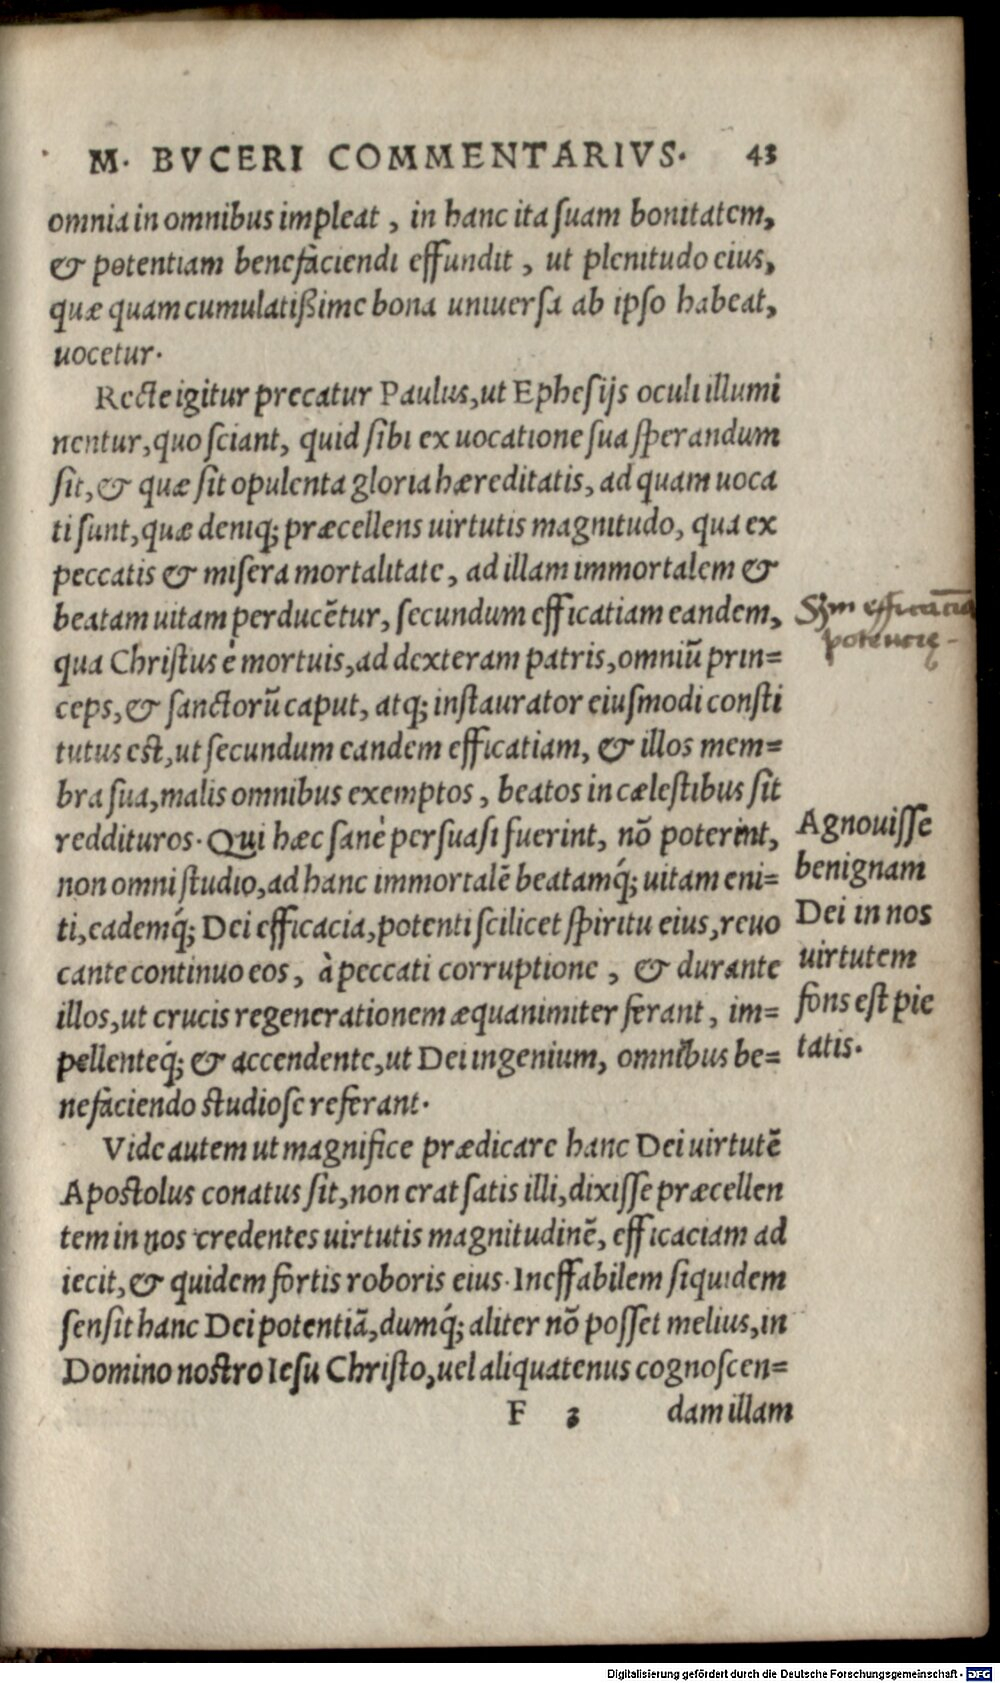 M. BVCERI COMMENTARIVS. 43
omnia in omnibus impleat, in hanc ita ſuam bonitatem,
& potentiam benefaciendi effundit, ut plenitudo eius,
quæ quam cumulatißime bona uniuerſa ab ipſo habeat,
uocetur.
Recte igitur precatur Paulus, ut Epheſijs oculi illumi
nentur, quo ſciant, quid ſibi ex uocatione ſua ſperandum
ſit, & quæ ſit opulenta gloria hæreditatis, ad quam uoca
ti ſunt, quæ deniq; præcellens uirtutis magnitudo, qua ex
peccatis & miſera mortalitate, ad illam immortalem &
beatam uitam perducẽtur, ſecundum efficatiam eandem,
qua Chriſtus è mortuis, ad dexteram patris, omniũ prin=
ceps, & ſanctorũ caput, atq; inſtaurator eiuſmodi conſti
tutus est, ut ſecundum eandem efficatiam, & illos mem=
bra ſua, malis omnibus exemptos, beatos in cæleſtibus ſit
reddituros. Qui hæc ſanè perſuaſi fuerint, nõ poterint,
non omni ſtudio, ad hanc immortalẽ beatamq́; uitam eni=
ti, eademq́; Dei efficacia, potenti ſcilicet ſpiritu eius, reuo
cante continuo eos, à peccati corruptione, & durante
illos, ut crucis regenerationem æquanimiter ferant, im=
pellenteq́; & accendente, ut Dei ingenium, omnibus be=
nefaciendo ſtudioſe referant.
Vide autem ut magnifice prædicare hanc Dei uirtutẽ
Apoſtolus conatus ſit, non erat ſatis illi, dixiſſe præcellen
tem in nos credentes uirtutis magnitudinẽ, efficaciam ad
iecit, & quidem fortis roboris eius. Ineffabilem ſiquidem
ſenſit hanc Dei potentiã, dumq́; aliter nõ poſſet melius, in
Domino noſtro Ieſu Chriſto, uel aliquatenus cognoſcen=
F 3 dam illam
efficaciã
potencię
Agnouiſſe
benignam
Dei in nos
uirtutem
fons eſt pie
tatis.
Digitalisierung gefördert durch die Deutsche Forschungsgemeinschaft - DFG